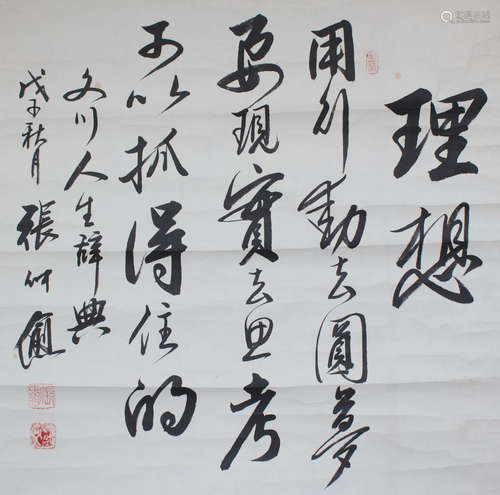 理想
用行動去圓夢
要現實去思考
可以抓得住的
文川人生辭典
戊子秋月 張何